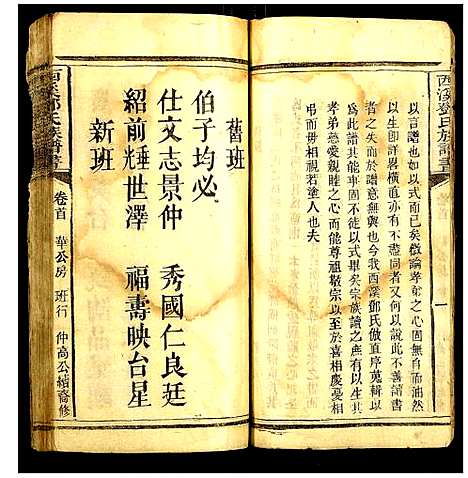 西溪鄧氏族譜書
一
以言譜也或式而已矣徵論孝弟之心固無自而油
以生即詳畧橫直亦有不盡同者又何以說此不善譜書
者之過而於譜意無與也今我西溪鄧氏倣直序蒐輯以
為此譜其能率固不徒以式畢矣宗族讀之庶有以生其
孝弟慈愛親睦之心而能尊祖敬宗以至於喜相慶憂相
弔而毋相視若塗人也夫
舊班
伯子均必
仕文志景仲 秀國仁良廷
紹前煙世澤 福壽映台星
新班
西溪鄧氏族譜書
卷首 華公房 班行 仲高公續裔修